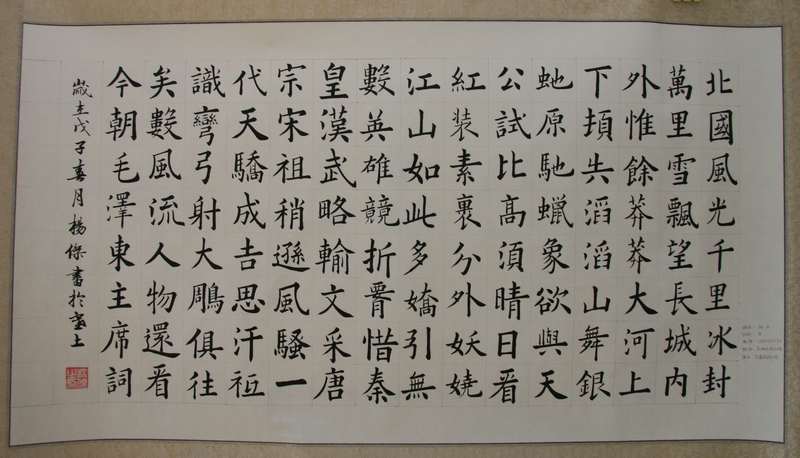 北國風光千里冰封
萬里雪飄望長城内
外惟餘莽莽大河上
下頓失滔滔山舞銀
虵原馳蠟象欲與天
公試比高須晴日看
紅装素裹分外妖嬈
江山如此多嬌引無
數英雄競折腰惜秦
皇漢武略輸文采唐
宗宋祖稍遜風騷一
代天驕成吉思汗衹
識彎弓射大鵰俱往
矣數風流人物還看
今朝毛澤東主席詞
歲在戊子春月楊傑書於